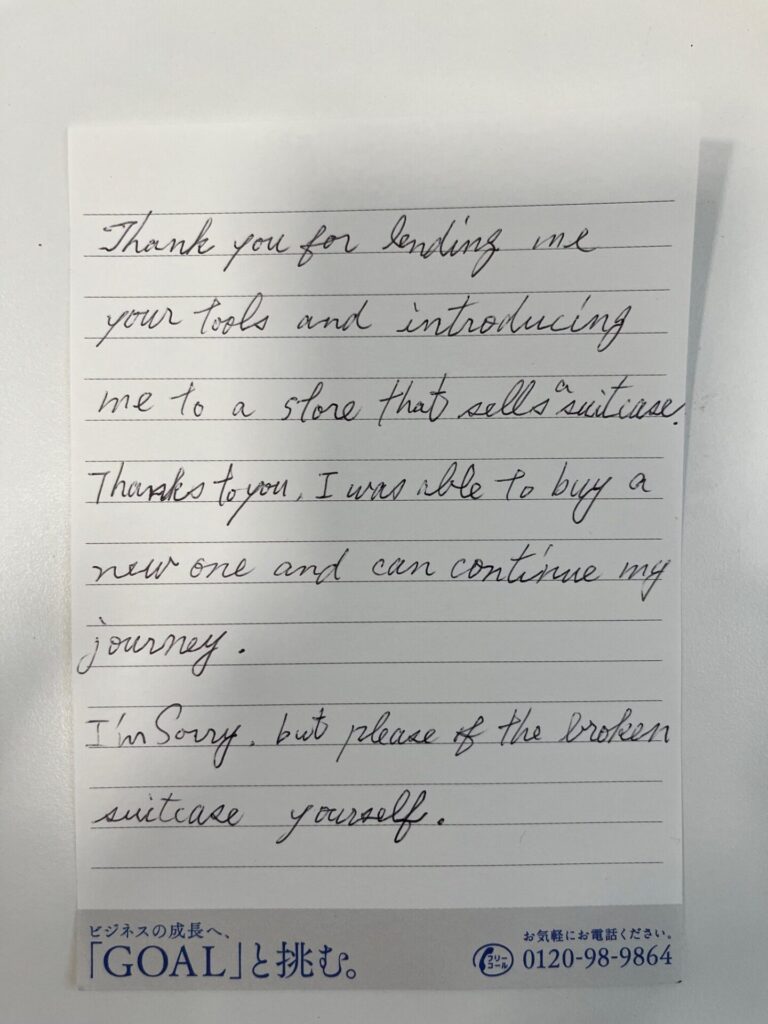 Thank you for lending me
your tools and introducing
me to a store that sells a suitcase.
Thanks to you, I was able to buy a
new one and can continue my
journey.
I'm Sorry, but please of the broken
suitcase yourself.
ビジネスの成長へ、
「GOAL」と挑む。
お気軽にお電話ください。
フリーコール 0120-98-9864